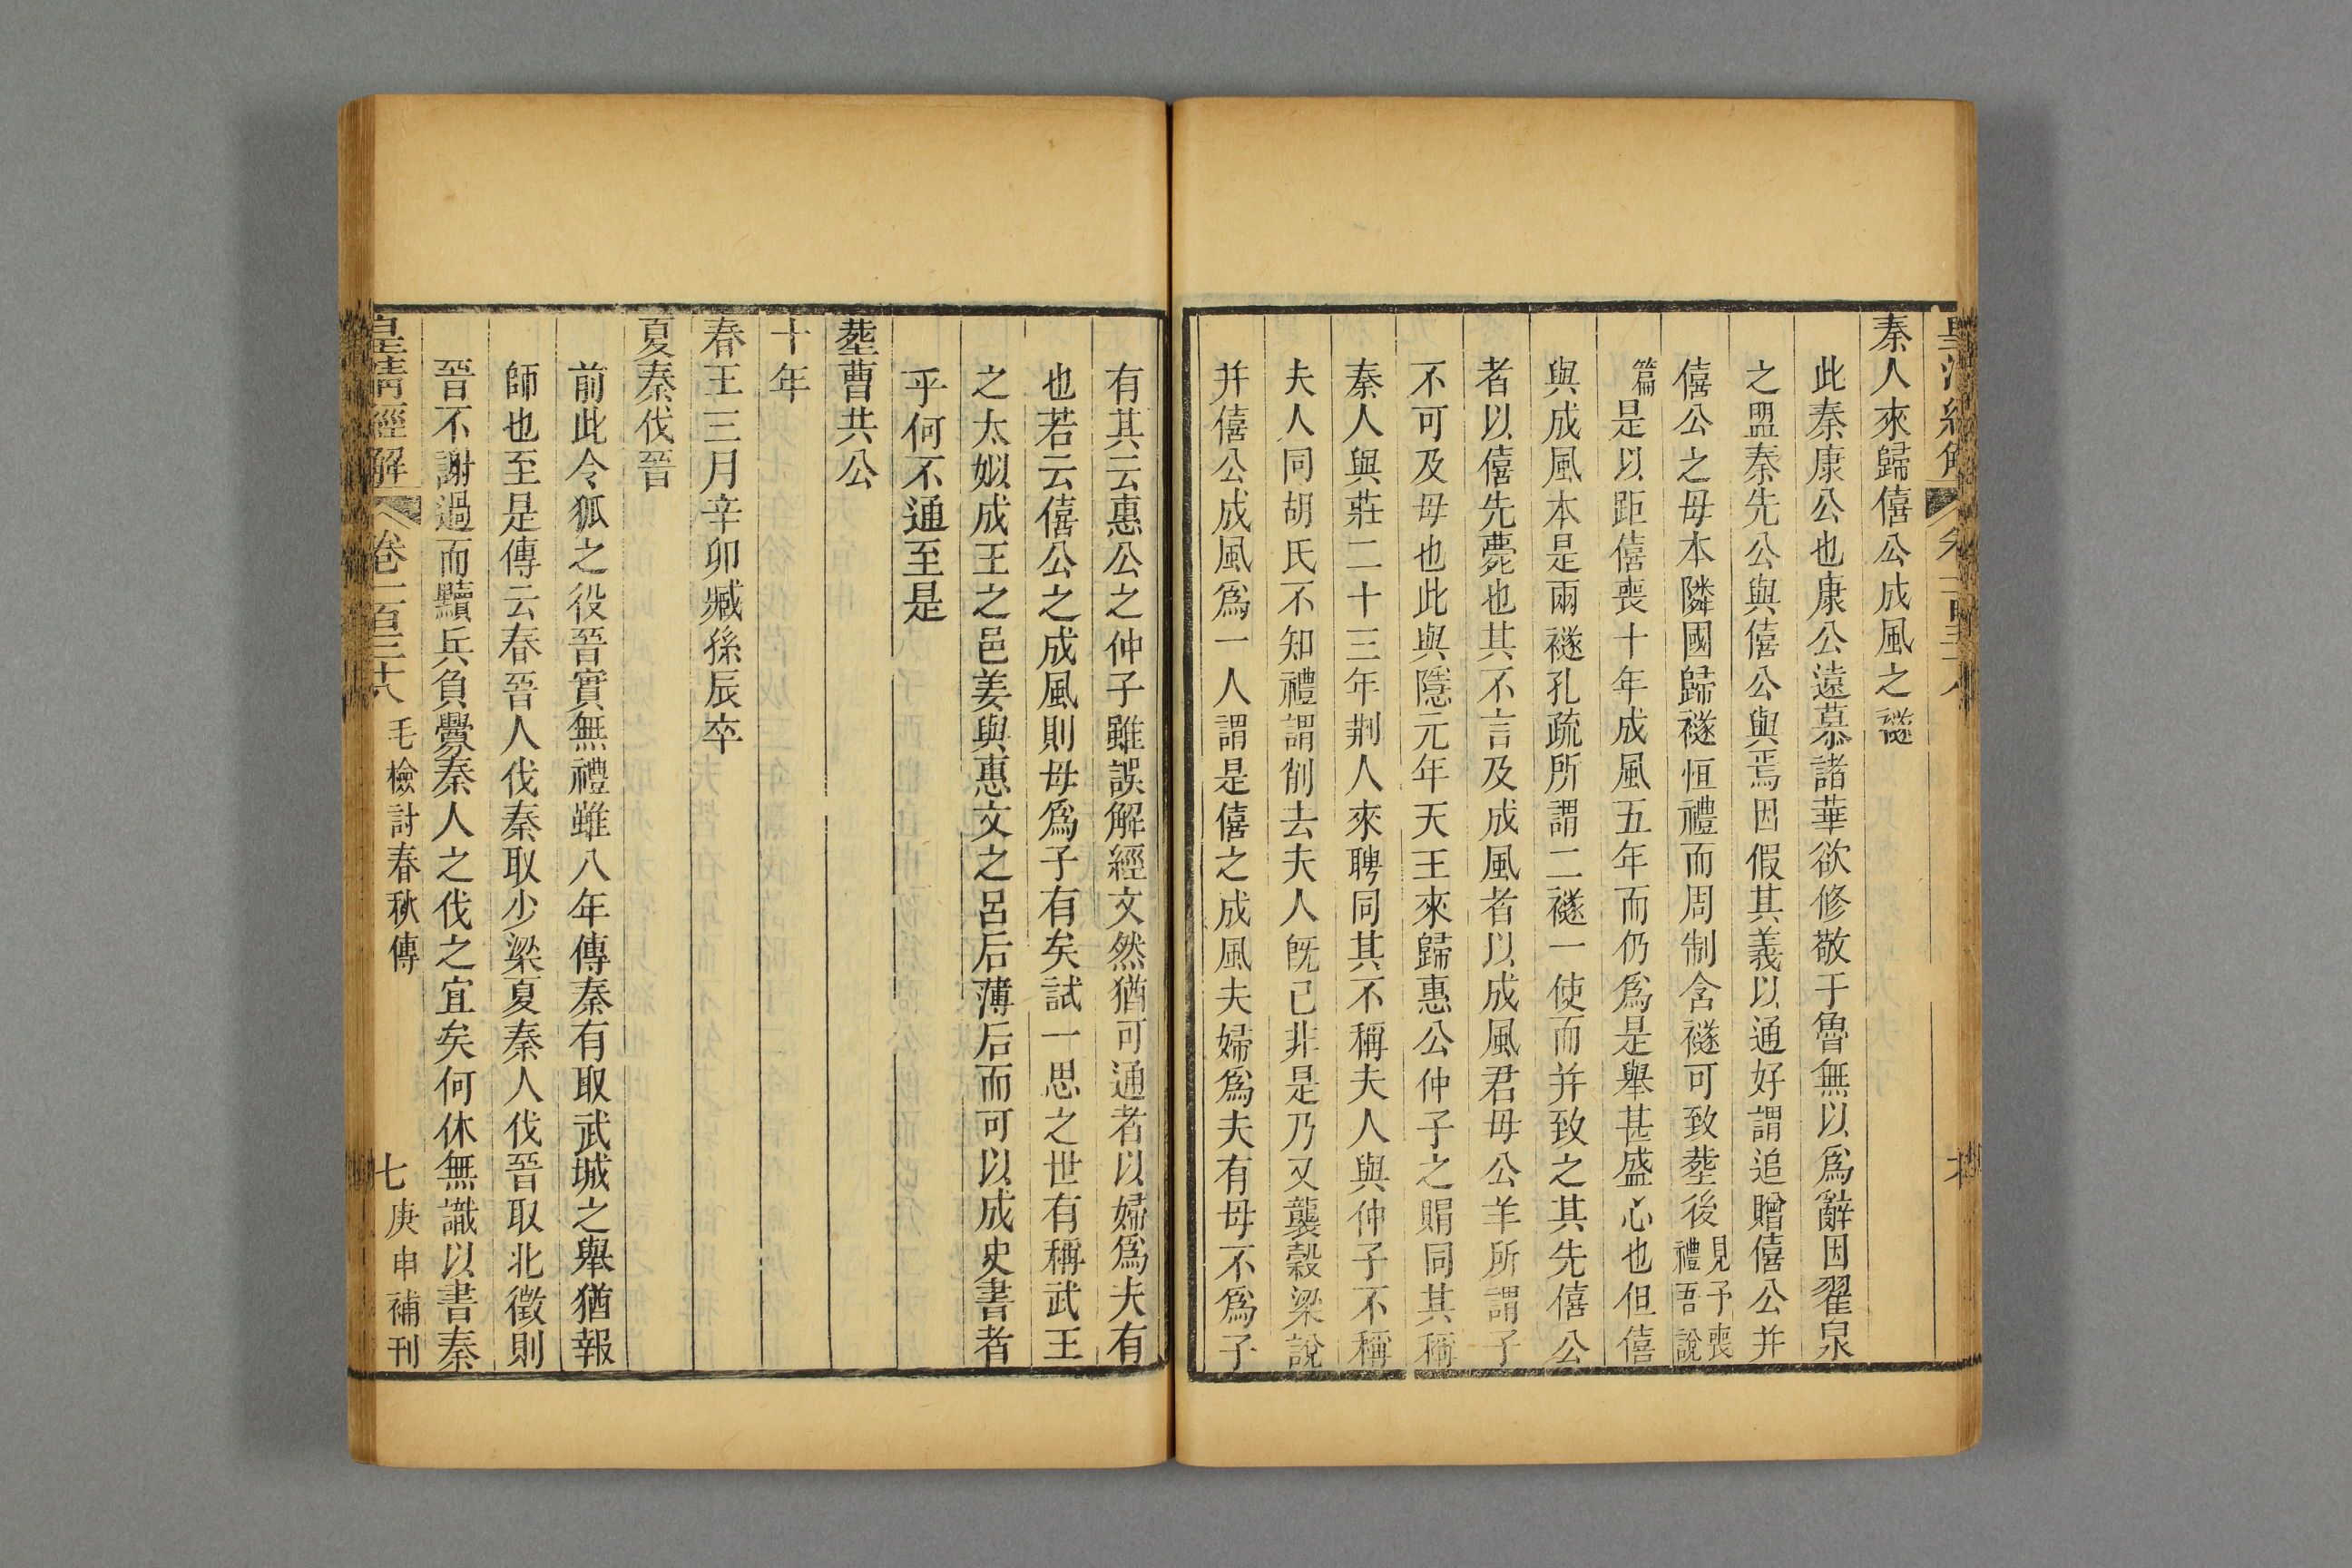 秦人來歸僖公成風之襚
此秦康公也康公遠慕諸華欲修敬于魯無以爲辭因翟泉
之盟秦先公與僖公與焉因假其義以通好謂追贈僖公并
僖公之母本隣國歸襚恒禮而周制含襚可致塟後見予喪禮吾說
篇是以距僖喪十年成風五年而仍爲是舉甚盛心也但僖
與成風本是兩襚孔疏所謂二襚一使而并致之其先僖公
者以僖先薨也其不言及成風者以成風君母公羊所謂子
不可及母也此與隱元年天王來歸惠公仲子之賵同其稱
秦人與莊二十三年荆人來聘同其不稱夫人與仲子不稱
夫人同胡氏不知禮謂削去夫人旣已非是乃又襲穀梁說
并僖公成風爲一人謂是僖之成風夫婦爲夫有母不爲子
有其云惠公之仲子雖誤解經文然猶可通者以婦爲夫有
也若云僖公之成風則母爲子有矣試一思之世有稱武王
之太姒成王之邑姜與惠文之呂后薄后而可以成史書者
乎何不通至是
塟曹共公
十年
春王三月辛卯臧孫辰卒
夏秦伐晉
前此令狐之役晉實無禮雖八年傳秦有取武城之舉猶報
師也至是傳云春晉人伐秦取少梁夏秦人伐晉取北徵則
晉不謝過而黷兵負釁秦人之伐之宜矣何休無識以書秦
皇清經解 卷一百三十八 毛檢討春秋傳 七 庚申補刊